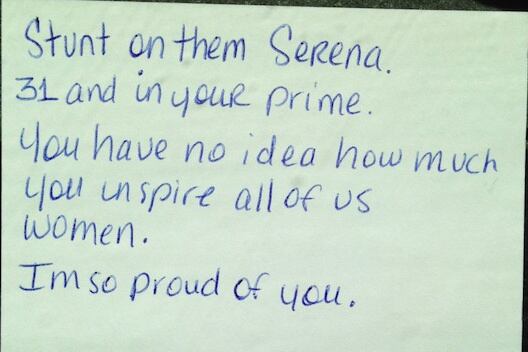 Stunt on them Serena.
31 and in your prime.
You have no idea how much
you inspire all of us
women.
Im so proud of you.